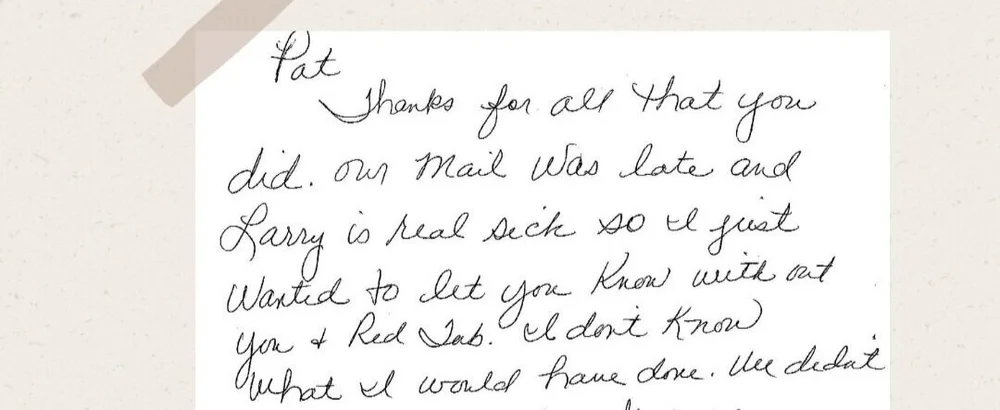 Pat
Thanks for all that you
did. our Mail Was late and
Larry is real sick so I just
Wanted to let you Know with out
you & Red Tab. I don't Know
What I would have done. We didn't